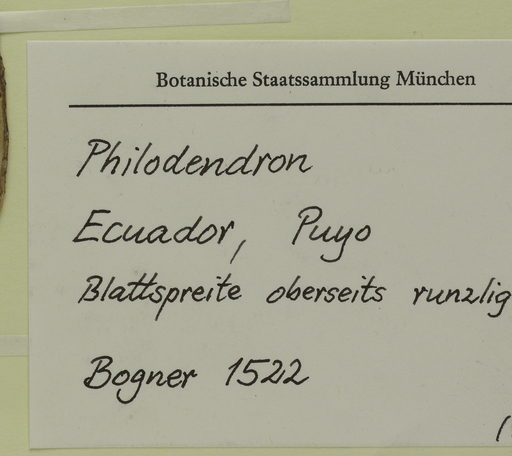 Botanische Staatssammlung München
Philodendron
Ecuador, Puyo
Blattspreite oberseits runzlig
Bogner 1522